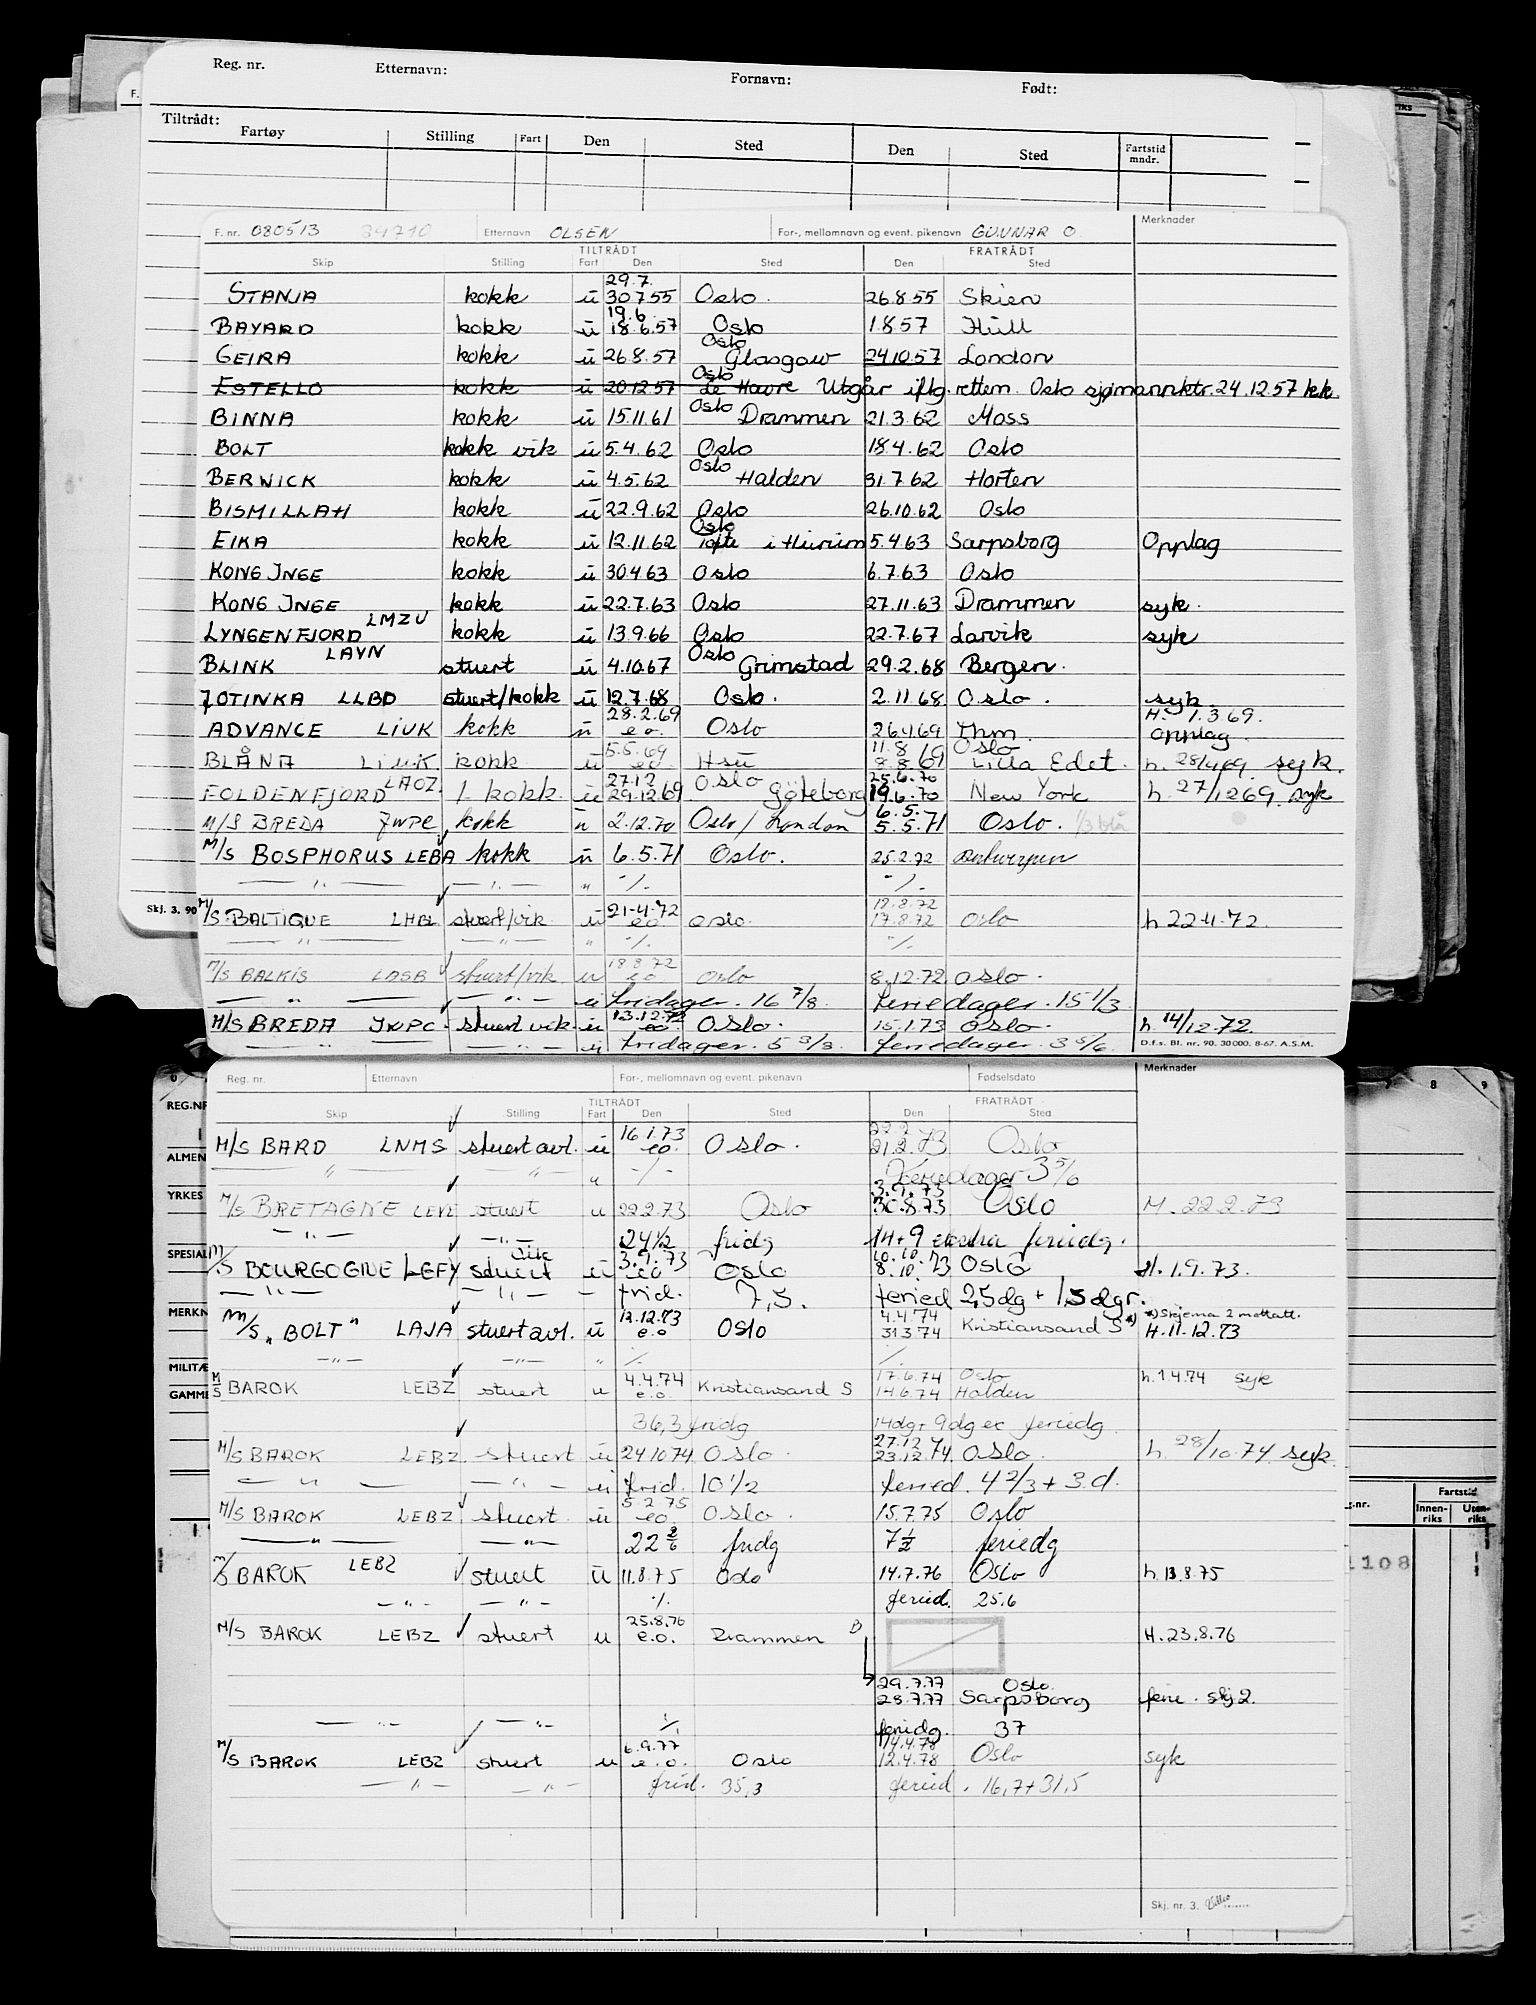 Reg. nr. Etternavn: Fornavn: Født:
Tiltrådt:
Fartøy Stilling Fart Den Sted Den Sted Fartstid mndr.
F. nr. 080513 34710 Etternavn OLSEN For-, mellomnavn og event. pikenavn GUNNAR O. Merknader
TILTRÅDT FRATRÅDT
Skip Stilling Fart Den Sted Den Sted
29.7.
STANJA kokk u 30.7.55 Oslo. 26.8.55 Skien
19.6.
BAYARD kokk u 18.6.57 Oslo 1.8.57 Hull
Oslo
GEIRA kokk u 26.8.57 Glasgow 24.10.57 London
Oslo
ESTELLO kokk u 20.12.57 Le Havre Utgår iflg. rettem. Oslo sjømannsktr. 24.12.57 kk.
BINNA kokk u 15.11.61 Oslo Drammen 21.3.62 Moss
BOLT kokk vik u 5.4.62 Oslo 18.4.62 Oslo
Oslo
BERWICK kokk u 4.5.62 Halden 31.7.62 Horten
BISMILLAH kokk u 22.9.62 Oslo 26.10.62 Oslo
Oslo
EIKA kokk u 12.11.62 Tofte i Hurum 5.4.63 Sarpsborg Opplag
KONG INGE kokk u 30.4.63 Oslo 6.7.63 Oslo
KONG INGE kokk u 22.7.63 Oslo 27.11.63 Drammen syk.
LYNGENFJORD LMZU kokk u 13.9.66 Oslo 22.7.67 Larvik syk
BLINK LAVN stuert u 4.10.67 Oslo Grimstad 29.2.68 Bergen.
JOTINKA LLBD stuert/kokk u 12.7.68 Oslo. 2.11.68 Oslo. syk.
28.2.69 H. 1.3.69.
ADVANCE LIUK kokk u e.o. Oslo 26.4.69 Thm. opplag.
5.5.69 11.8 Oslo
BLÅNA LIUK. kokk u eo Hsu 8.8.69 Lilla Edet. h. 28/4.69. syk.
27.12 Oslo 25.6.70
FOLDENFJORD LAOZ. 1. kokk. u 29.12.69 Göteborg 19.6.70 New York h. 27/12 69. syk
6.5.
M/S BREDA JWPC kokk u 2.12.70 Oslo / London 5.5.71 Oslo.
M/S BOSPHORUS LEBA kokk u 6.5.71 Oslo. 25.2.72 Antwerpen
— " — — " — " -/- -/-
21.4.72 18.8.72
M/S BALTIQUE stuert/vik u eo. Oslo. 17.8.72 Oslo h 22.4.72.
— " — — " — " -/- -/-
18.8.72
M/S BALKIS stuert/vik u eo Oslo 8.12.72 Oslo.
— " — — " — u fridager. 16 7/8. feriedager. 15 1/3
13.12.72
M/S BREDA JWPC stuert vik. u eo Oslo. 15.1.73 Oslo. h. 14/12.72.
— " — — " — u fridager. 5 3/3. feriedager. 3 5/6. D.f.s. Bl. nr. 90. 30000. 8-67. A.S.M.
Skj. 3. 90
Reg. nr. Etternavn For-, mellomnavn og event. pikenavn Fødselsdato Merknader
TILTRÅDT FRATRÅDT
Skip Stilling Fart Den Sted Den Sted
16.1.73 22.2.
M/S BARD LNMS stuert avl. u eo. Oslo. 21.2.73 Oslo
" — " — " -/- Feriedager 3 5/6
3.9.73
M/S BRETAGNE stuert u 22.2.73 Oslo 30.8.73 Oslo H. 22.2.73
— " — — " — 24 1/2 fridg 14 + 9 ekstra feriedg.
vik 3.9.73 10.10.
M/S BOURGOGNE LEFY stuert u eo Oslo 8.10.73 Oslo H. 1.9.73.
— " — — " — frid. 7,5. feried 2,5dg + 1,5dgr.
12.12.73 4.4.74 *) Skjema 2 mottatt.
M/S "BOLT" LAJA stuert avl. u e.o Oslo 31.3.74 Kristiansand S *) H. 11.12.73
— " — — " — " -/- -/-
4.4.74 17.6.74 Oslo
M/S BAROK LEBZ stuert u e.o. Kristiansand S 14.6.74 Halden h. 1.4.74 syk
36,3 fridg 14dg + 9dg ex feriedg
27.12
M/S BAROK LEBZ stuert u 24.10.74 Oslo. 23.12.74. Oslo. h. 28/10.74. syk
— " — — " — u frid. 10 1/2 feried. 4 2/3 + 3.d.
5.2.75
M/S BAROK LEBZ stuert. u eo. Oslo. 15.7.75 Oslo
— " — — " — 22 2/6 fridg 7 1/2 feriedg
M/S BAROK LEBZ stuert u 11.8.75 Oslo 14.7.76 Oslo h. 13.8.75
— " — — " — -/- feried. 25.6
25.8.76
M/S BAROK LEBZ stuert u e.o. Drammen B H. 23.8.76
29.7.77 Oslo.
28.7.77 Sarpsborg ferie. skj 2.
— " — — " — -/- feriedg. 37
6.9.77 14.4.78
M/S BAROK LEBZ stuert u e.o. Oslo 12.4.78 Oslo syk
— " — — " — frid. 35,3 feried. 16,7 + 31,5
Skj. nr. 3.
REG.NR
ALMEN
YRKES
SPESIAL
MERKN
MILITÆ
GAMME
8 9
Fartstid
Innen-riks Uten-riks
1108